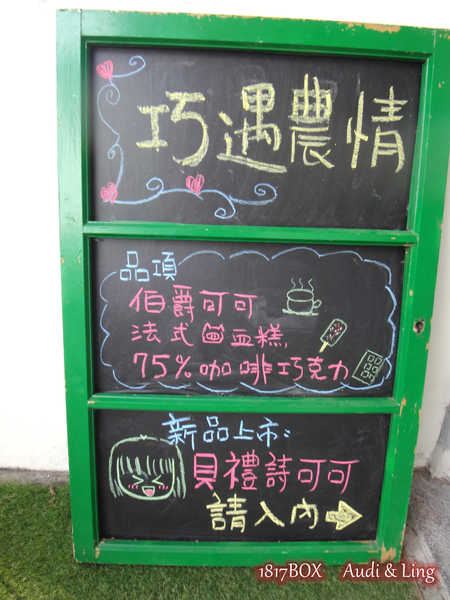 巧遇農情
品項
伯爵可可
法式皿糕,
75%咖啡巧克力
新品上市:
貝禮詩可可
請入內→
1817BOX Audi & Ling